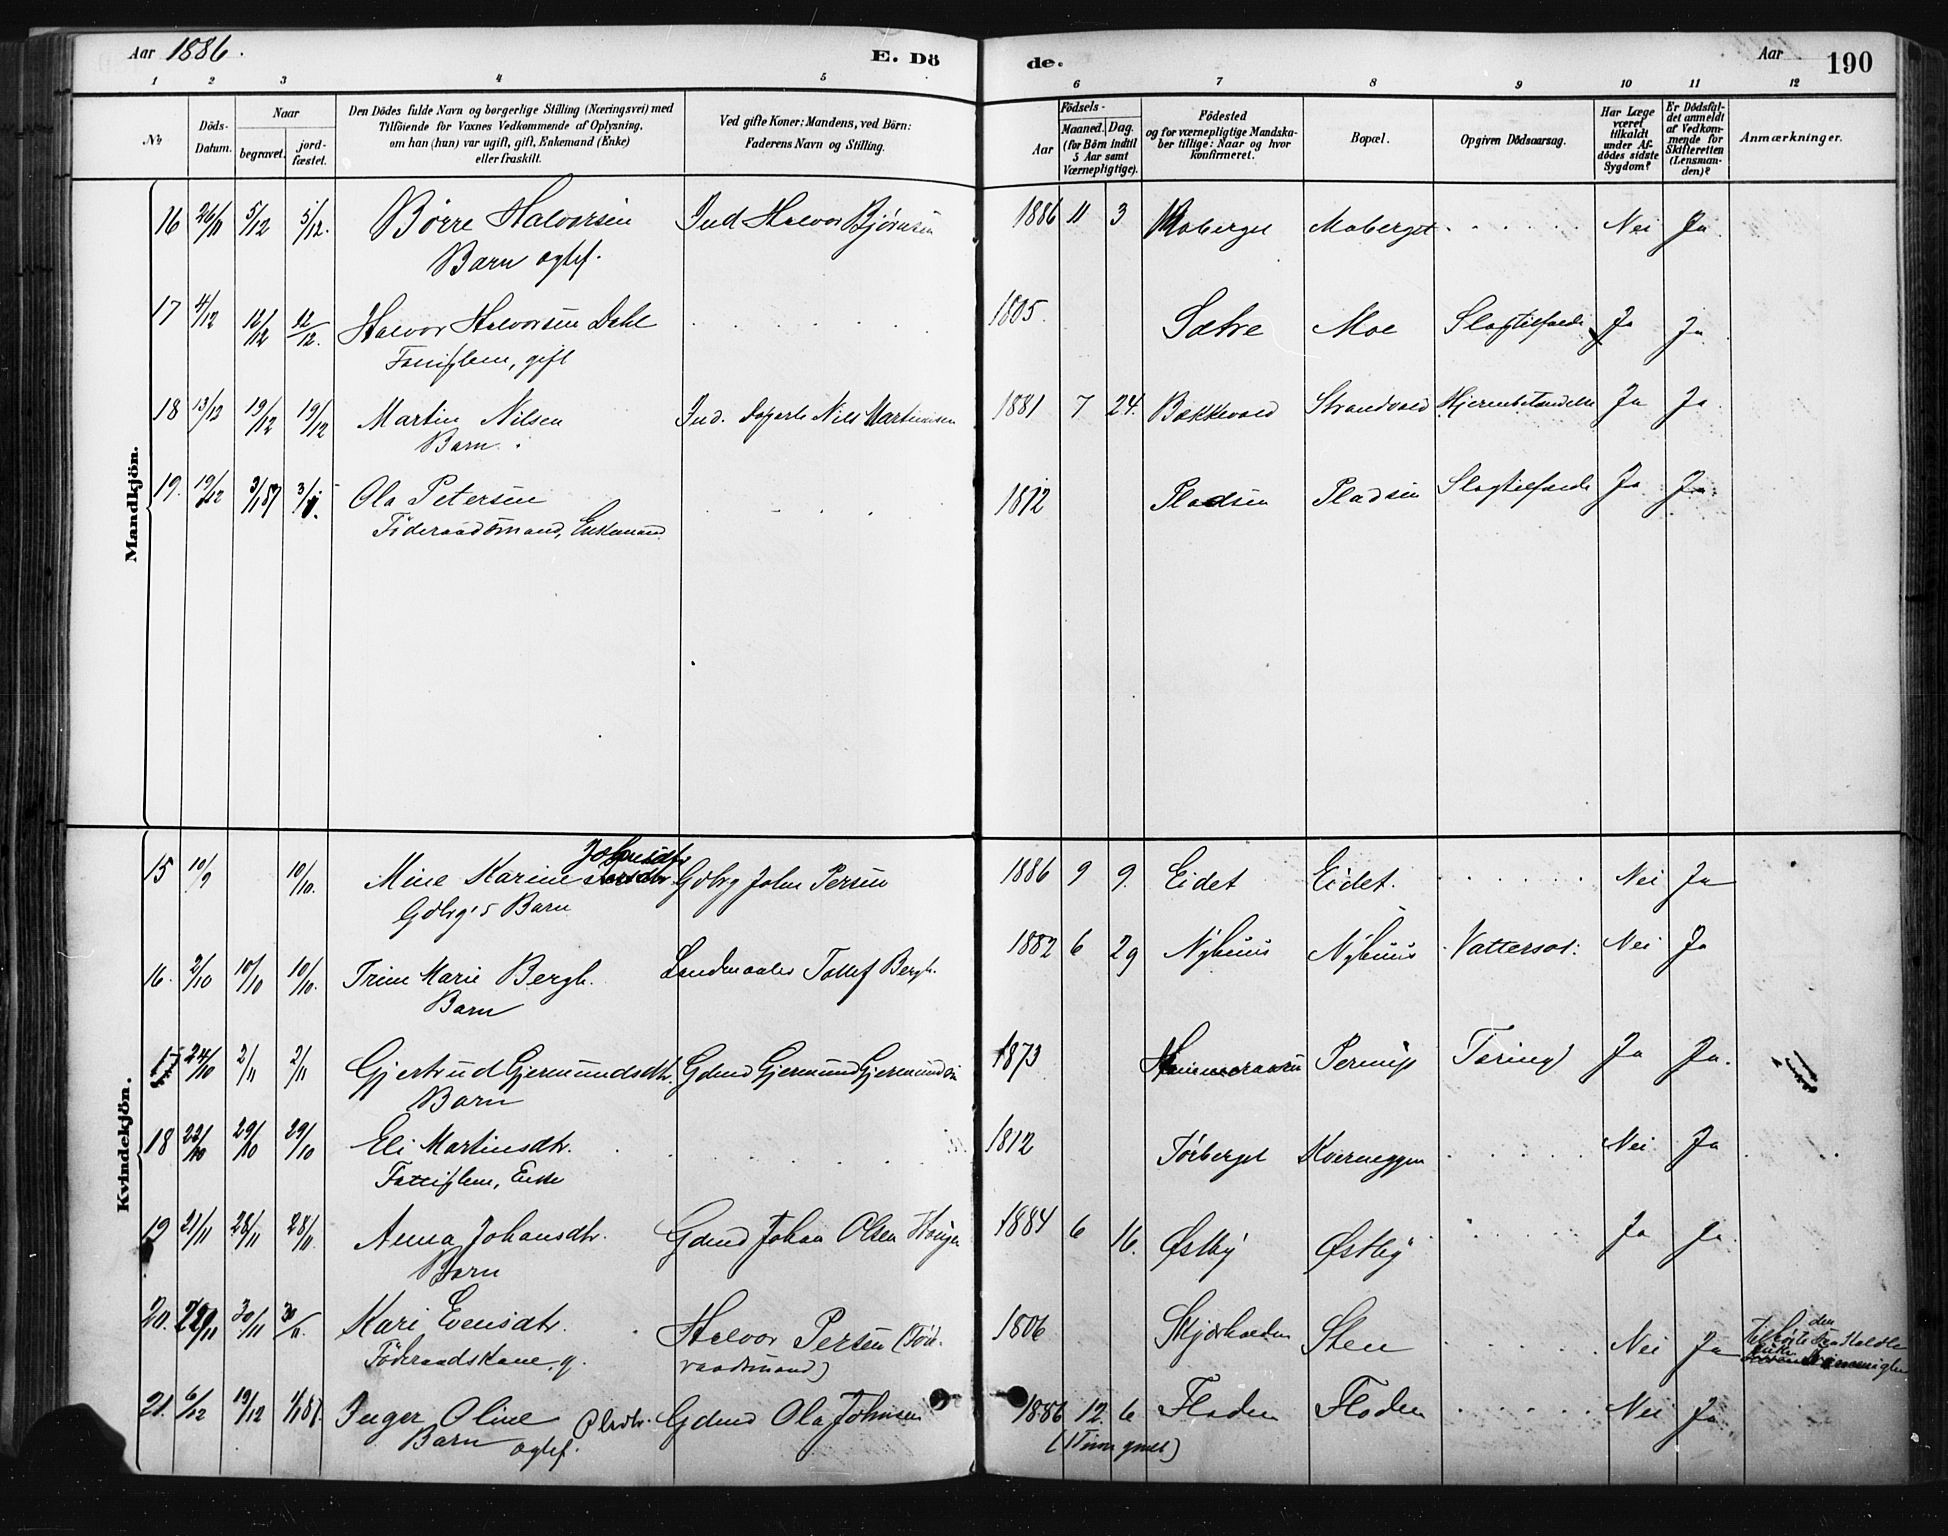 Aar 1886.
E. Dö
de.
Aar
190
1 2 3 4 5 6 7 8 9 10 11 12
No
Döds-Datum.
Naar
begravet.
jord-fæstet.
Den Dödes fulde Navn og borgerlige Stilling (Næringsvei) med
Tilföiende for Voxnes Vedkommende af Oplysning,
om han (hun) var ugift, gift, Enkemand (Enke)
eller fraskilt.
Ved gifte Koner: Mandens, ved Börn:
Faderens Navn og Stilling.
Födsels-
Aar
Maaned. Dag.
(for Börn indtil
5 Aar samt
Værnepligtige).
Födested
og for værnepligtige Mandska-
ber tillige: Naar og hvor
konfirmeret.
Bopæl.
Opgiven Dödsaarsag.
Har Læge
været
tilkaldt
under Af-
dödes sidste
Sygdom?
Er Dödsfal-
det anmeldt
af Vedkom-
mende for
Skifteretten
(Lensman-
den)?
Anmærkninger.
Mandkjön.
16 26/11 5/12 5/12. Børre Halvorsen Ind Halvor Bjørnsen 1886 11 3 Moberget Moberget Nei Ja
Barn ogtef.
17 4/12 12/12 12/12. Halvor Halvorsen Dahl 1805. Sætre Moe Slagtilfælde Ja Ja
Fattiglem, gift
18 13/12 19/12 19/12 Martin Nilsen Ind. Nils Martinusen 1881 7 24. Bakkevold Strandvold Hjernebetændelse Ja Ja
Barn.
19. 19/12 3/1 87 3/1. Ola Petersen 1812 Pladsen Pladsen Slagtilfælde Ja Ja
Föderaadsmand, Enkemand
Kvindekjön.
15 10/9 10/10. Mine Karine Johnsdtr. Gdbrg John Persen 1886 9 9. Eidet Eidet. Nei Ja
Gdbrg's Barn
16. 2/10 10/10 10/10. Trine Marie Bergh. Landmaaler Tollef Bergh. 1882 6 29 Nyhuus Nyhuus Vattersot. Nei Ja
Barn
17 24/10 2/11 2/11 Gjertrud Gjermundsdtr. Gdmd Gjermund Gjermundsen 1873 Pernup Tæring Ja Ja.
Barn
18 22/10 29/10 29/10 Eli Martinsdtr. 1812 Törberget Kverneggen Nei Ja
Fattiglem, Enke
19 21/11 28/11 28/11. Anna Johansdtr. Gdmd Johan Olsen 1884 6 16. Østby Østby Ja Ja.
Barn
20. 30/11 30/11. Kari Evensdtr. Halvor Persen (Föd- 1806 Skjærholden Sten Nei Ja
Föderaadskone, g. raadsmand)
21. 6/12 19/12 1/1 87 Inger Oline Olsdtr. Gdmd Ola Johnsen 1886 12 6 Floden Floden Nei Ja
Barn ogtef. (1 Time gmlt)